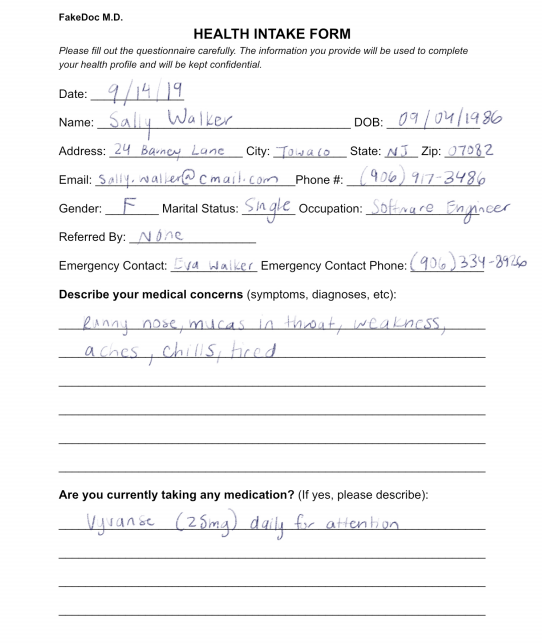 FakeDoc M.D.
HEALTH INTAKE FORM
Please fill out the questionnaire carefully. The information you provide will be used to complete
your health profile and will be kept confidential.
Date: 9/14/19
Name: Sally Walker DOB: 09/04/1986
Address: 24 Barney Lane City: Towaco State: NJ Zip: 07082
Email: Sally.walker@cmail.com Phone #: (906) 917-3486
Gender: F Marital Status: Single Occupation: Software Engineer
Referred By: None
Emergency Contact: Eva Walker Emergency Contact Phone: (906) 334-8926
Describe your medical concerns (symptoms, diagnoses, etc):
Runny nose, mucas in throat, weakness,
aches, chills, tired
Are you currently taking any medication? (If yes, please describe):
Vyvanse (25mg) daily for attention